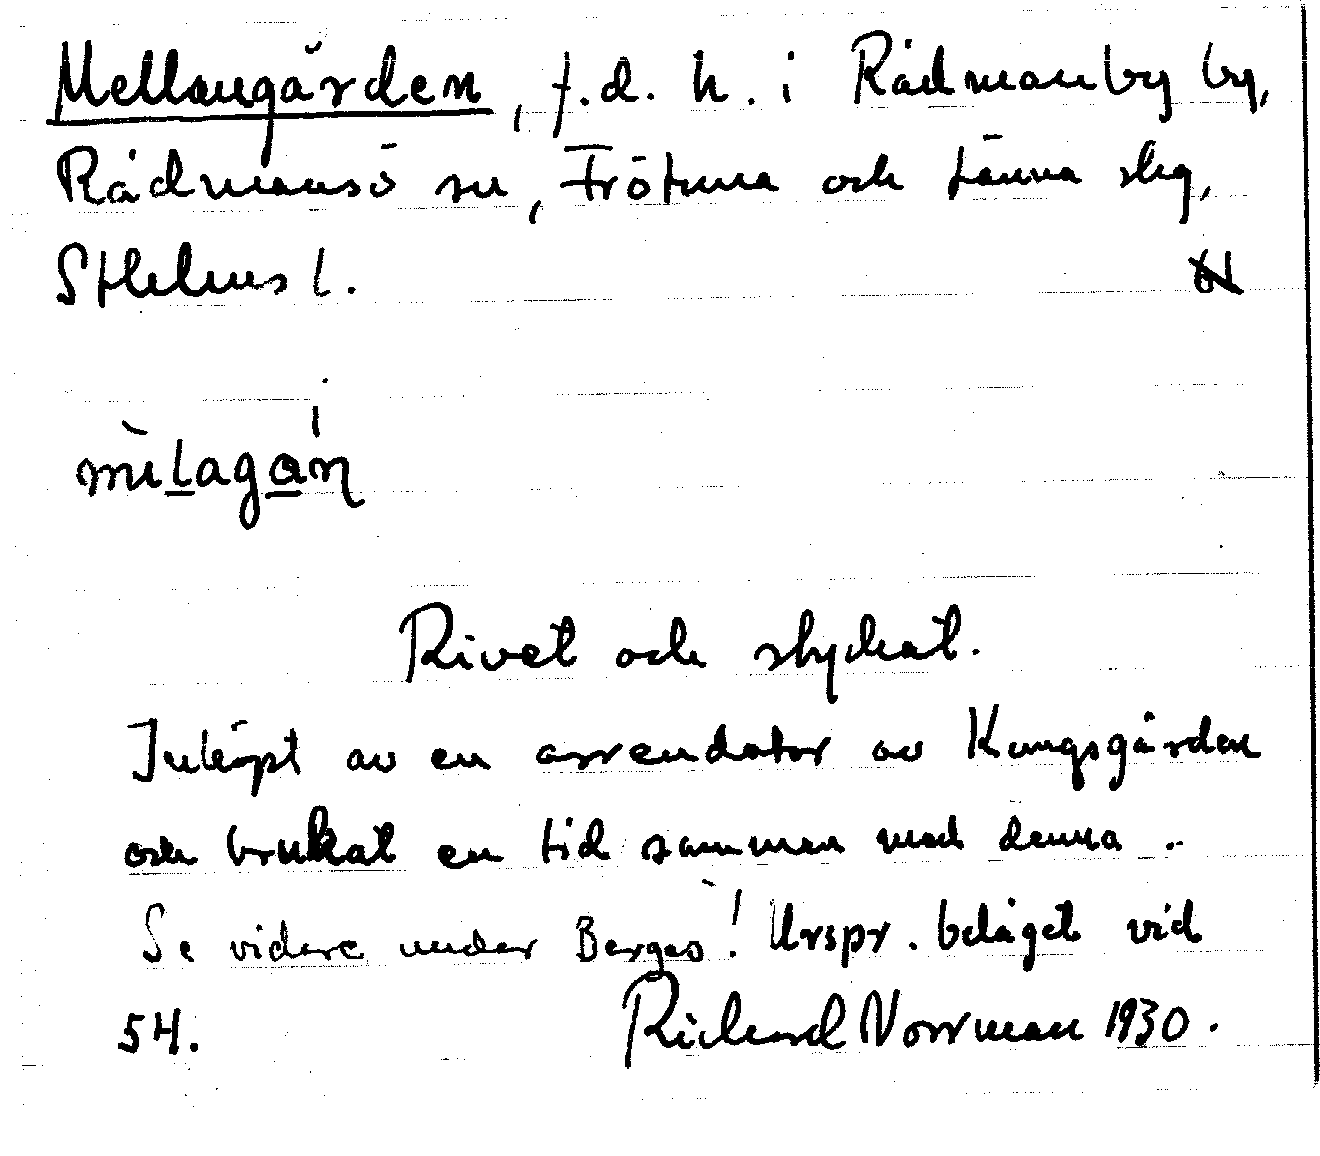 Mellangården, f.d. h. i Rådmanby by,
Rådmansö sn, Frötuna och Länna skg,
Sthlms l.
mìlagáṇ
Rivet och styckat.
Inköpt av en arrendator av Kungsgården
och brukat en tid samman med denna.
Se vidare under Bergas! Urspr. beläget vid
54. Richard Norrman 1930.